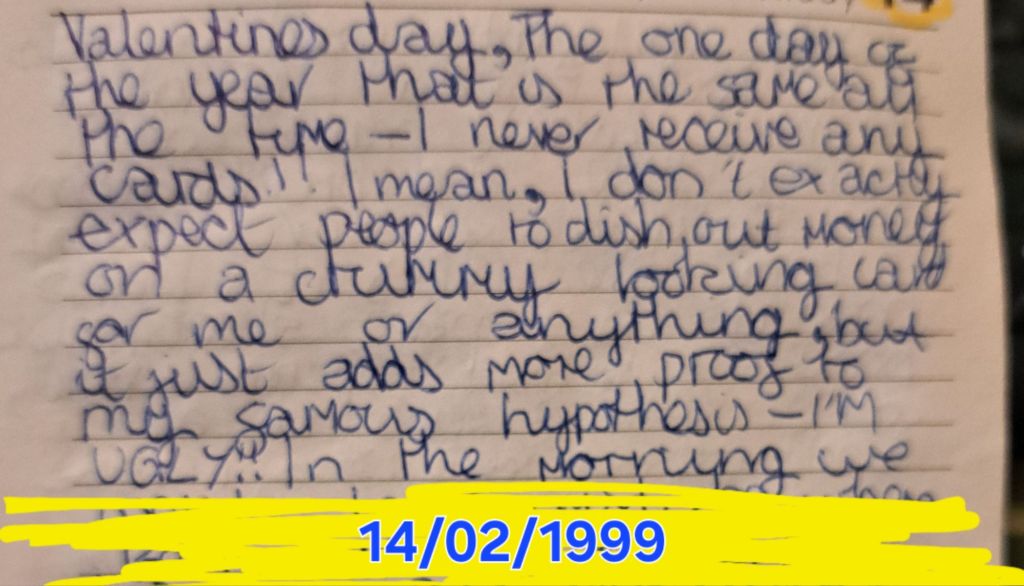 14
Valentines day, The one day of
the year that is the same all
the time - I never receive any
cards!! I mean, I don't exactly
expect people to dish out money
on a dummy looking card
for me or anything, but
it just adds more proof to
my famous hypothesis - I'M
UGLY!! In the morning we
14/02/1999